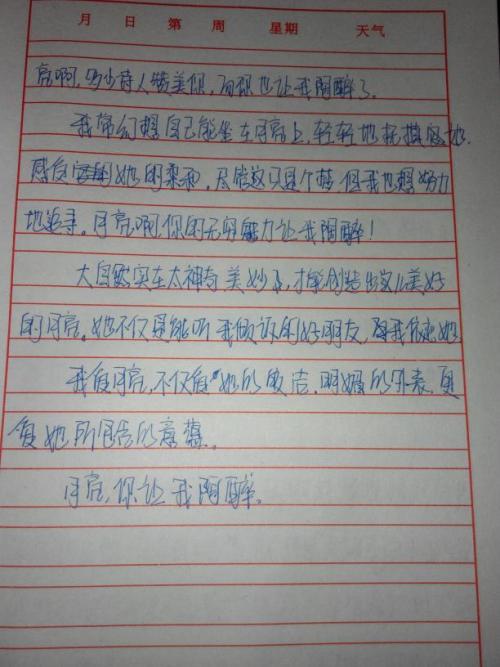 月 日 第 周 星期 天气
亮啊,多少诗人赞美你,而你也让我陶醉了。
我常幻想自己能坐在月亮上,轻轻地抚摸着她,
感受着她的柔和。尽管这只是个梦,但我也想努力
地追寻。月亮啊,你的无穷魅力让我陶醉!
大自然实在太神奇美妙了,才能创造出这么美好
的月亮。她不仅是能听我倾诉的好朋友,我
我爱月亮,不仅爱她的皎洁、明媚的外表,更
爱她所包含的意蕴。
月亮,你让我陶醉。